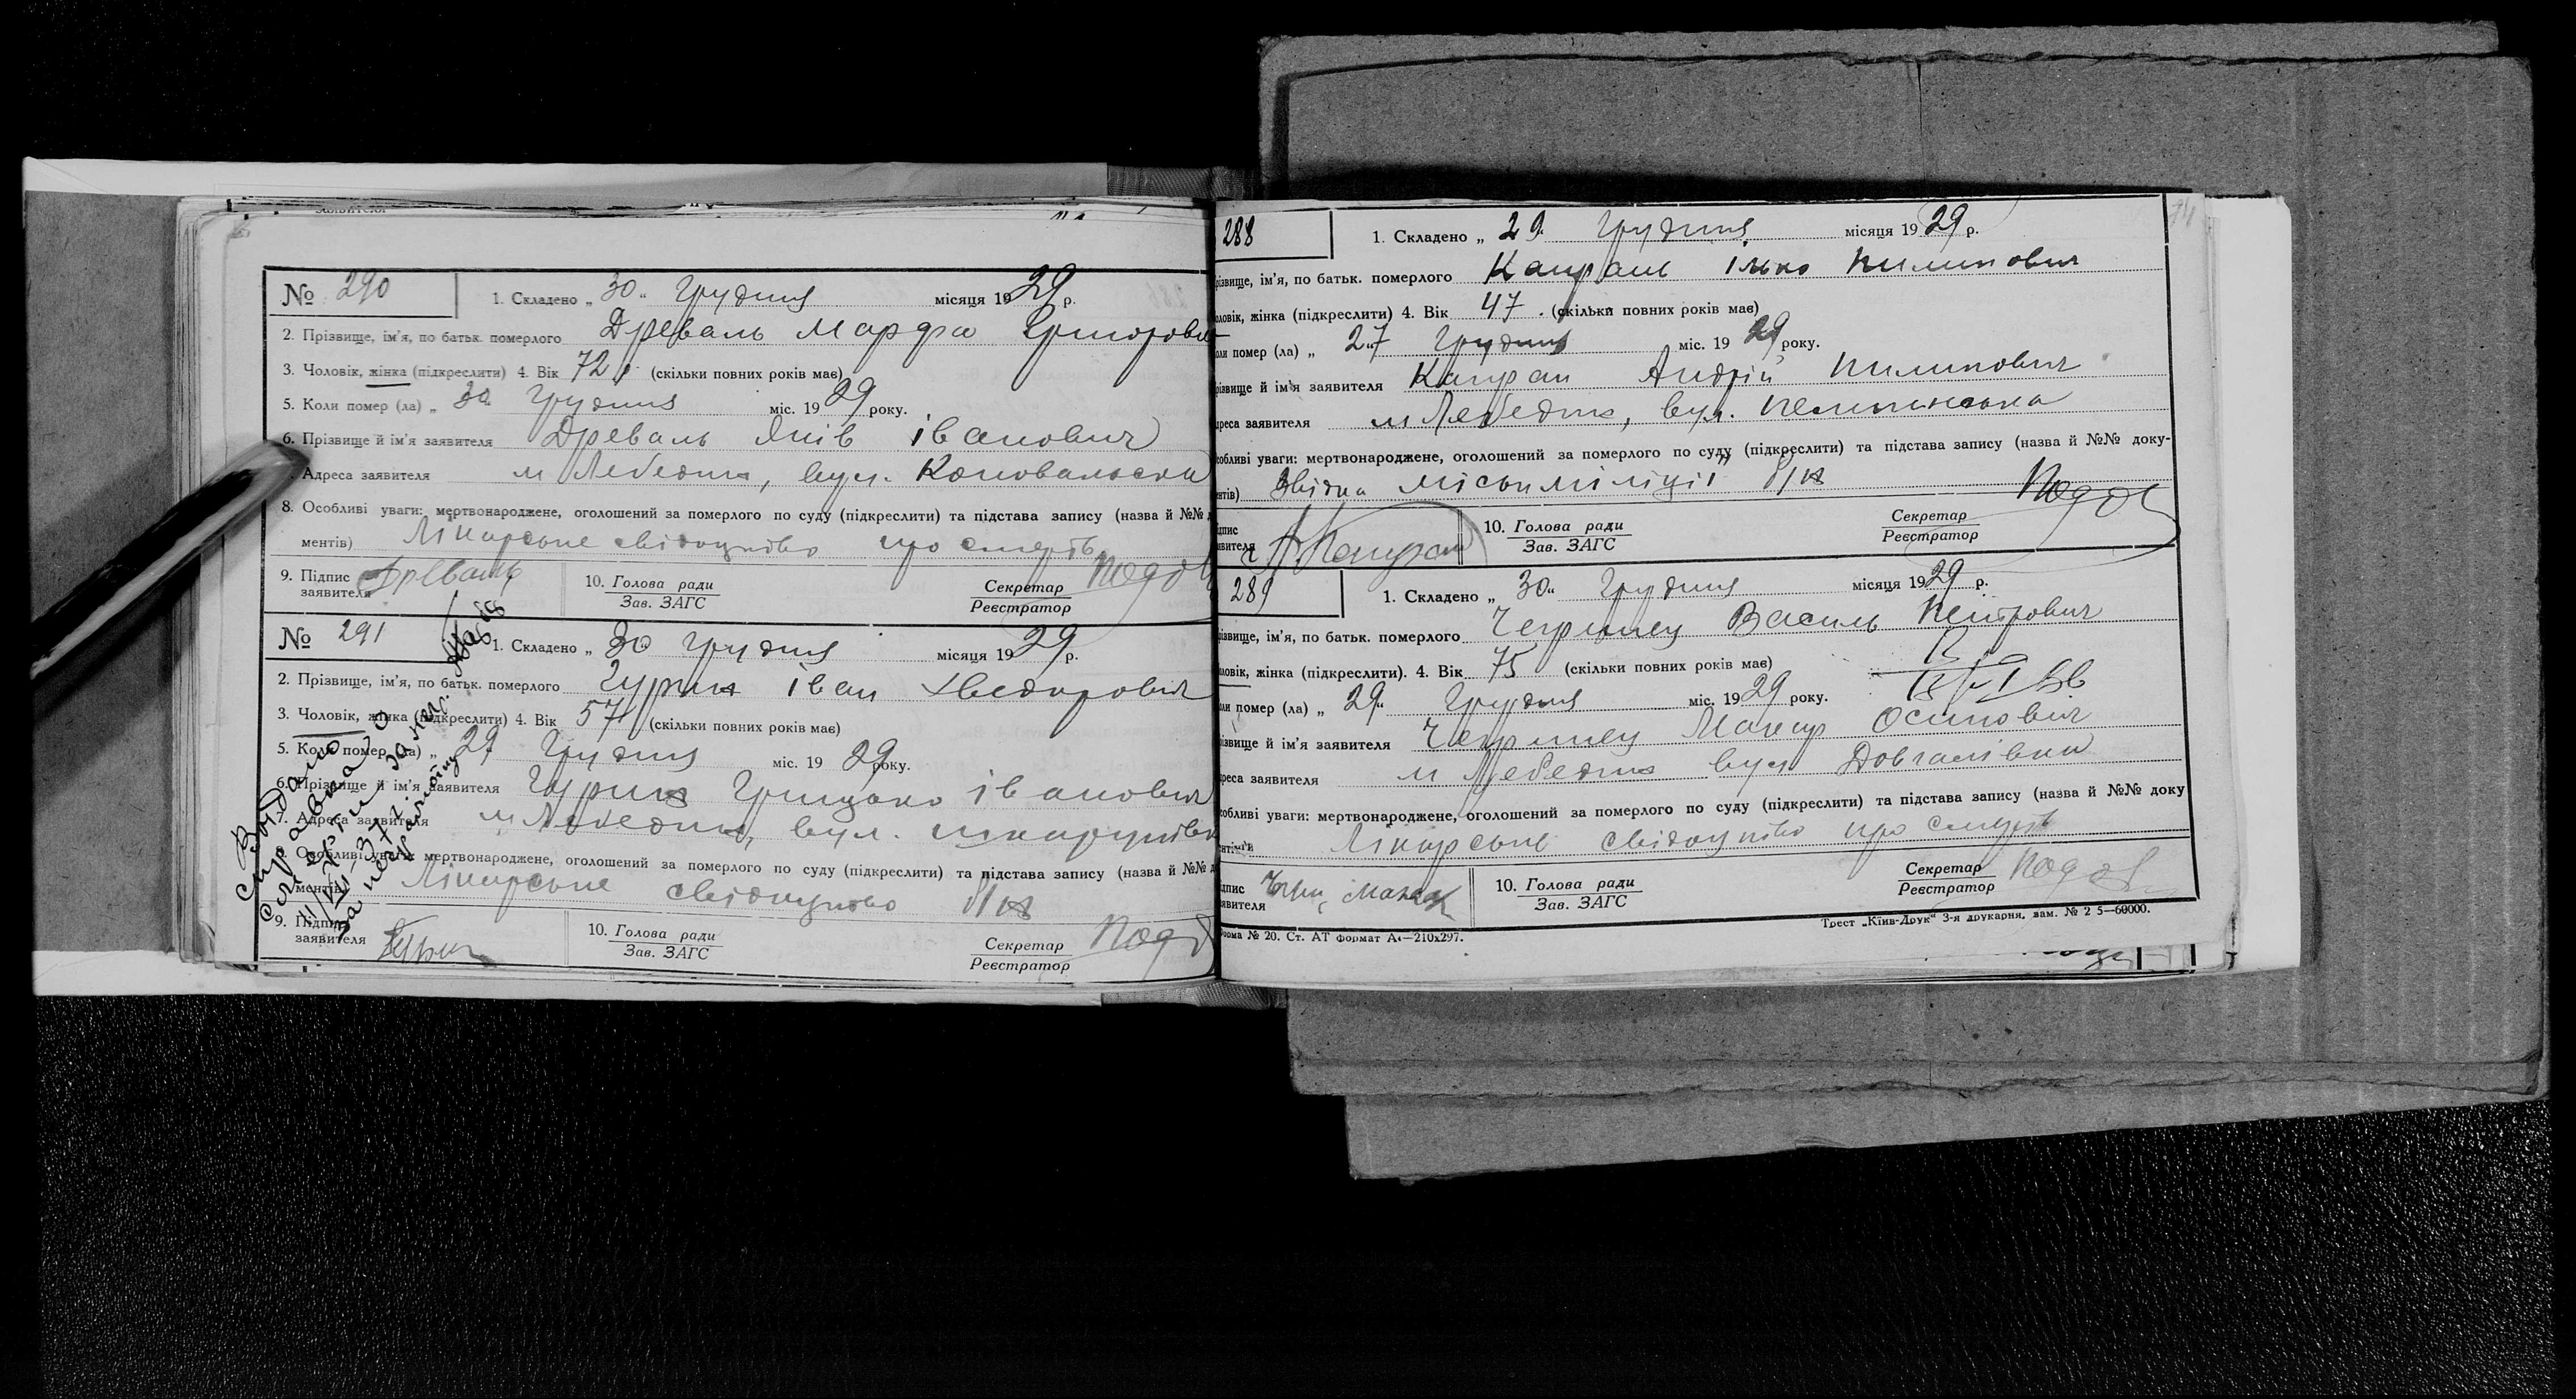 № 290
1. Складено „ 30 “ Грудня місяця 1929 р.
2. Прізвище, ім'я, по батьк. померлого Древаль Марфа Григоровн
3. Чоловік, жінка (підкреслити) 4. Вік 72 (скільки повних років має)
5. Коли помер (ла) „ 30 Грудня міс. 1929 року.
6. Прізвище й ім'я заявителя Древаль Яків Іванович
Адреса заявителя м Лебедин, вул. Коновальська
8. Особливі уваги: мертвонароджене, оголошений за померлого по суду (підкреслити) та підстава запису (назва й №№ д
ментів) Лікарське свідоцтво про смерть
9. Підпис заявителя Древаль
10. Голова ради
Зав. ЗАГС
Секретар
Реєстратор
№ 291
1. Складено „ 30 Грудня місяця 1929 р.
2. Прізвище, ім'я, по батьк. померлого Гурин Іван Хведорович
3. Чоловік, жінка (підкреслити) 4. Вік 57 (скільки повних років має)
5. Коли помер (ла) „ 29 Грудня міс. 1929 року.
6. Прізвище й ім'я заявителя Гурин Грицько Іванович
7. Адреса заявителя м Лебедин, вул.
8. Особливі уваги: мертвонароджене, оголошений за померлого по суду (підкреслити) та підстава запису (назва й №№ д
ментів) Лікарське свідоцтво
9. Підпис заявителя Гурин
10. Голова ради
Зав. ЗАГС
Секретар
Реєстратор
Выдана
справка о
смерти
288
1. Складено „ 29 “ Грудня місяця 1929 р.
різвище, ім'я, по батьк. померлого Капраль Ілько Пилипович
оловік, жінка (підкреслити) 4. Вік 47 . (скільки повних років має)
оли помер (ла) „ 27 Грудня міс. 1929 року.
різвище й ім'я заявителя Капрал Андрій Пилипович
дреса заявителя м Лебедин, вул.
собливі уваги: мертвонароджене, оголошений за померлого по суду (підкреслити) та підстава запису (назва й №№ доку-
нтів) Звідка міськміліції
ідпис
аявителя А Капрал
10. Голова ради
Зав. ЗАГС
Секретар
Реєстратор
289
1. Складено „ 30 “ Грудня місяця 1929 р.
різвище, ім'я, по батьк. померлого Чегринец Василь Петрович
оловік, жінка (підкреслити). 4. Вік 75 (скільки повних років має)
оли помер (ла) „ 29 “ Грудня міс. 1929 року.
різвище й ім'я заявителя Чегринец Макар Осипович
дреса заявителя м Лебедин вул Довгалівка
собливі уваги: мертвонароджене, оголошений за померлого по суду (підкреслити) та підстава запису (назва й №№ доку
ентів Лікарське свідоцтво про смерть
ідпис
аявителя
10. Голова ради
Зав. ЗАГС
Секретар
Реєстратор
Форма № 20. Ст. АТ формат А4—210х297.
Трест „Київ-Друк“ 3-я друкарня, зам. № 2 5—60000.